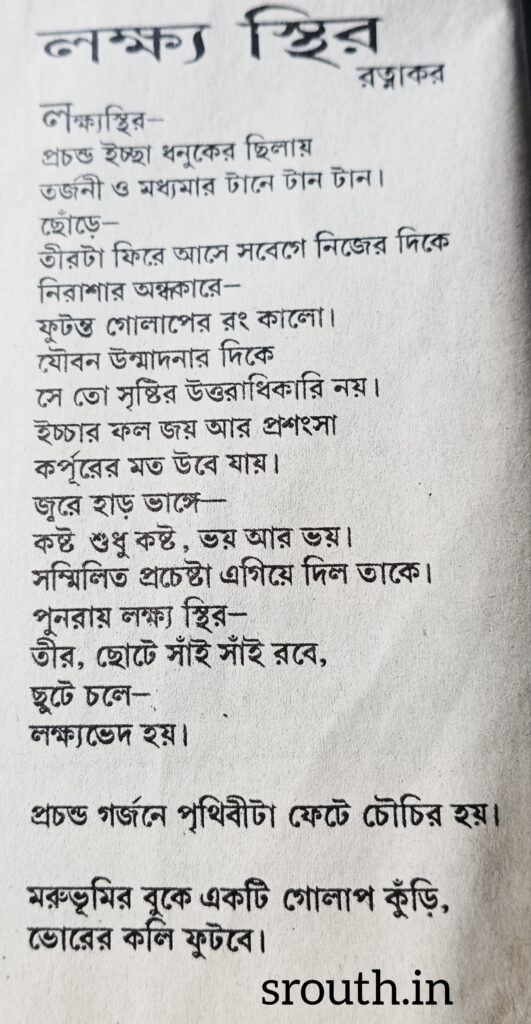 লক্ষ্য স্থির
রত্নাকর
লক্ষ্যস্থির—
প্রচন্ড ইচ্ছা ধনুকের ছিলায়
তর্জনী ও মধ্যমার টানে টান টান।
ছোঁড়ে—
তীরটা ফিরে আসে সবেগে নিজের দিকে
নিরাশার অন্ধকারে—
ফুটন্ত গোলাপের রং কালো।
যৌবন উন্মাদনার দিকে
সে তো সৃষ্টির উত্তরাধিকারি নয়।
ইচ্চার ফল জয় আর প্রশংসা
কর্পূরের মত উবে যায়।
জ্বরে হাড় ভাঙ্গে—
কষ্ট শুধু কষ্ট, ভয় আর ভয়।
সম্মিলিত প্রচেষ্টা এগিয়ে দিল তাকে।
পুনরায় লক্ষ্য স্থির—
তীর, ছোটে সাঁই সাঁই রবে,
ছুটে চলে—
লক্ষ্যভেদ হয়।
প্রচন্ড গর্জনে পৃথিবীটা ফেটে চৌচির হয়।
মরুভূমির বুকে একটি গোলাপ কুঁড়ি,
ভোরের কলি ফুটবে।
srouth.in